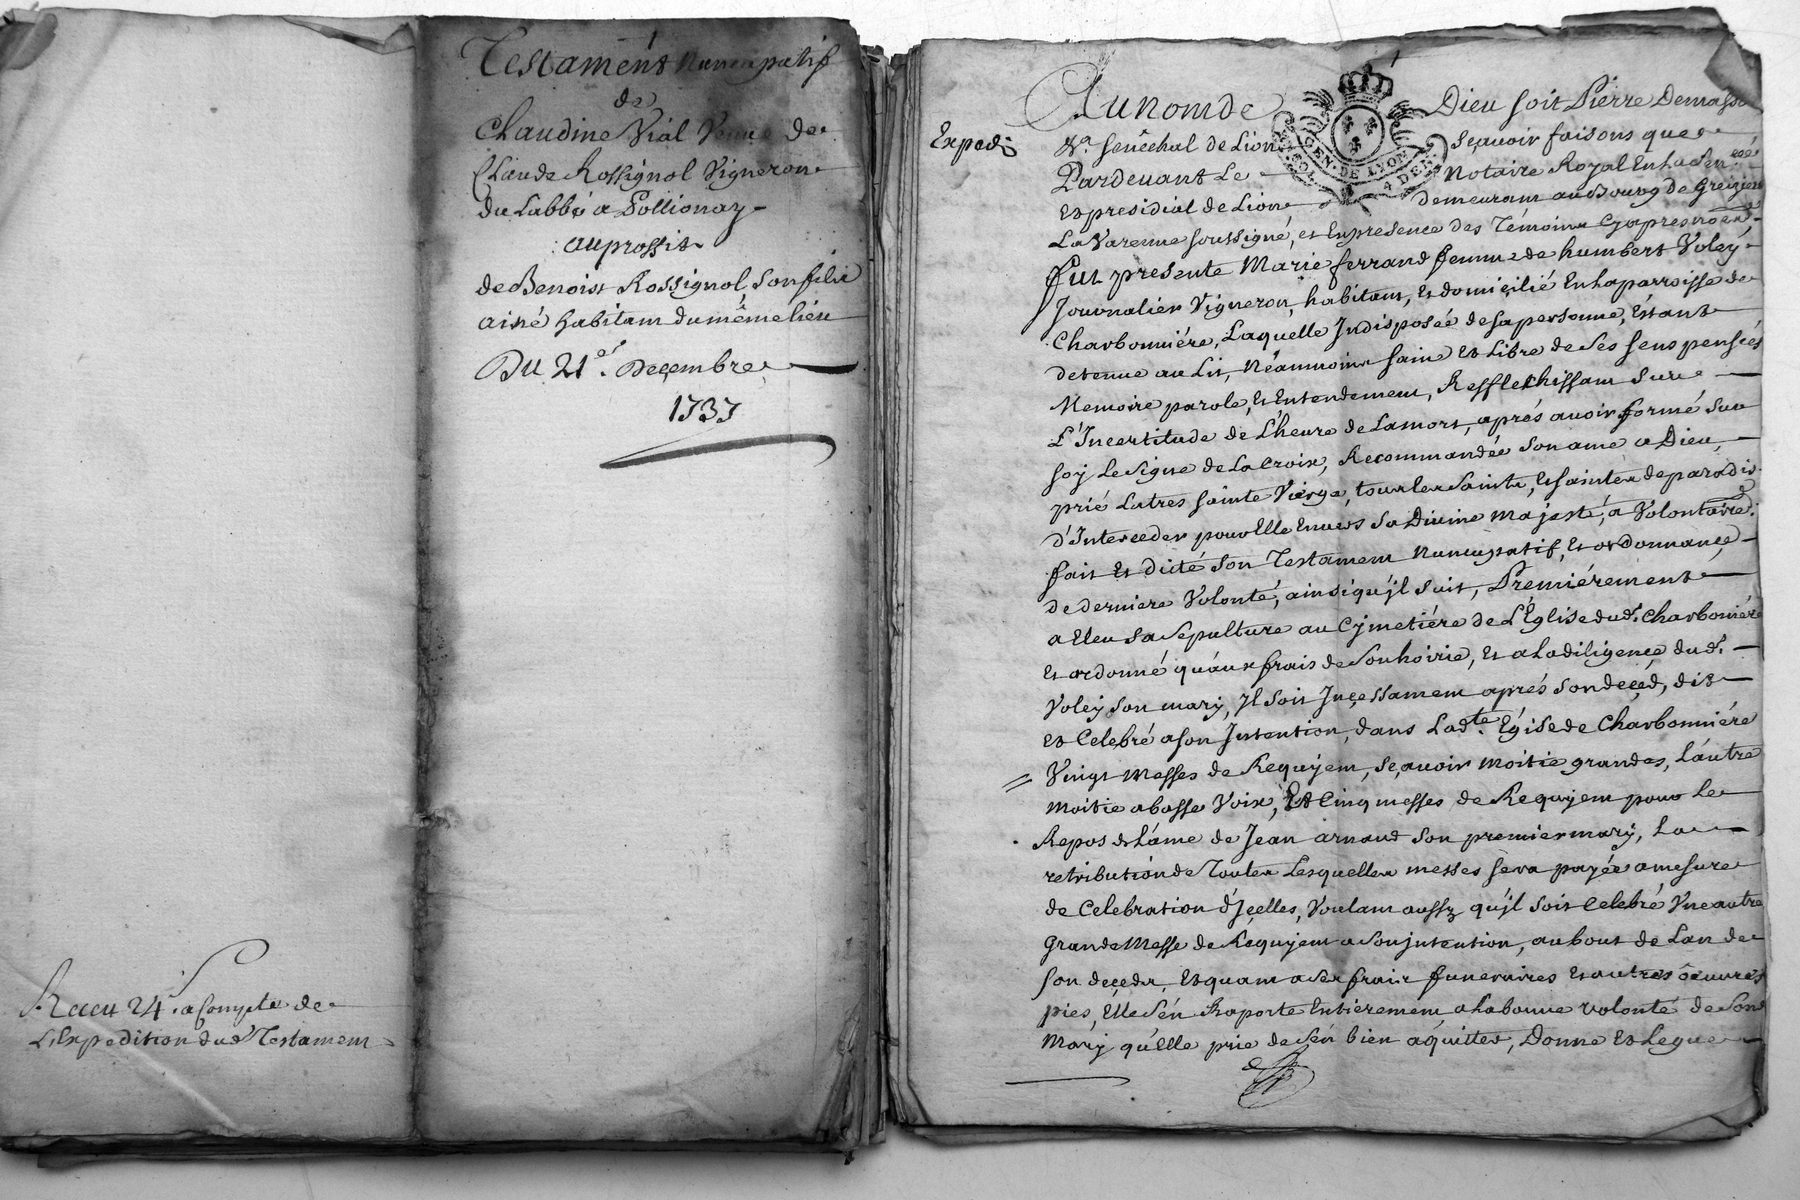 Testament nuncupatif
de
Claudine Vial Veuve de
Claude Rossignol Vigneron
du Labbé a Pollionay
au proffit
de Benoist Rossignol Son fils
aisné habitant du même lieu
Du 21e. Decembre
1737
Receu 24s. a Compte de
L'Expedition dud. Testament
1
Expedié
Au nom de Dieu soit Pierre Demasso
Sr. senéchal de Lion Sçavoir faisons que
Pardevant Le Notaire Royal En la Sen.ceé
GEN. DE LYON
Et presidial de Lion demeurant au Bourg de Greizieu
La Varenne soussigné, et En presence des Témoins Cy apres nom̃és
fut presente Marie ferrand femme de humbert Voley
Journalier Vigneron, habitant, Et domicilié En la parroisse de
Charbonniére, Laquelle Indisposée de sa personne, Estant
detenue au Lit, Néanmoins saine Et Libre de Ses sens pensées
Memoire parole, Et Entendement, Refflechissant Sur
L'Incertitude de L'heure de La mort, aprés avoir formé Sur
soy Le Signe de La Croix, Recommandée Son ame a Dieu,
prié La tres sainte Vierge, tous les Saints, Et saintes de paradis
d'Interceder pour Elle Envers Sa Divine Majesté, a Volontaire.
fait Et dicté Son Testament Nuncupatif, Et ordonnance
de derniere Volonté, ainsi qu'jl Suit, Premiérement
a Eleu Sa Sepulture au Cymetiére de L'Église dud. Charboniére
Et ordonné qu'aux frais de Son hoirie, Et a La diligence dud.
Voley Son mary, Jl Soit Inçessament aprés Son deced, dit
Et Celebré a Son Intention, dans Lad.te Égise de Charbonniére
Vingt Messes de Requiem, Sçavoir moitie grandes, L'autre
Moitie a basse Voix, Et Cinq messes de Requiem pour Le
Repos de L'ame de Jean arnaud Son premier mary, La
retribution de Toutes Lesquelles messes sera payée a mesure
de Celebration d'Jcelles, Voulant aussy qu'jl Soit Celebré Vne autre
Grande Messe de Requiem a Son jntention, au bout de L'an de
son deçeds, Et quant a Ses frais funeraires Et autres oeuvres
pies, Elle S'en Raporte Entierement a La bonne volonté de Son d
Mary qu'Elle prie de S'en bien aquitter, Donne Et Legue